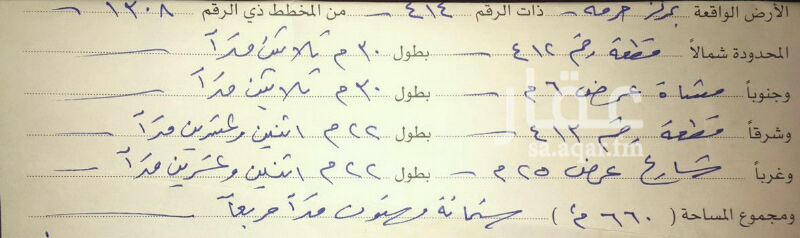 الأرض الواقعة بمركز حرمه ذات الرقم ٤١٤ من المخطط ذي الرقم ١٣٠٨
المحدودة شمالاً قطعة رقم ٤١٢ بطول ٣٠ م ثلاثين متراً
وجنوباً مشاة عرض ٦ م بطول ٣٠ م ثلاثين متراً
وشرقاً قطعة رقم ٤١٣ بطول ٢٢ م اثنين وعشرين متراً
وغرباً شارع عرض ٢٥ م بطول ٢٢ م اثنين وعشرين متراً
ومجموع المساحة ( ٦٦٠ م٢ ) ستمائة وستون متراً مربعاً
عقار
sa.aqar.fm